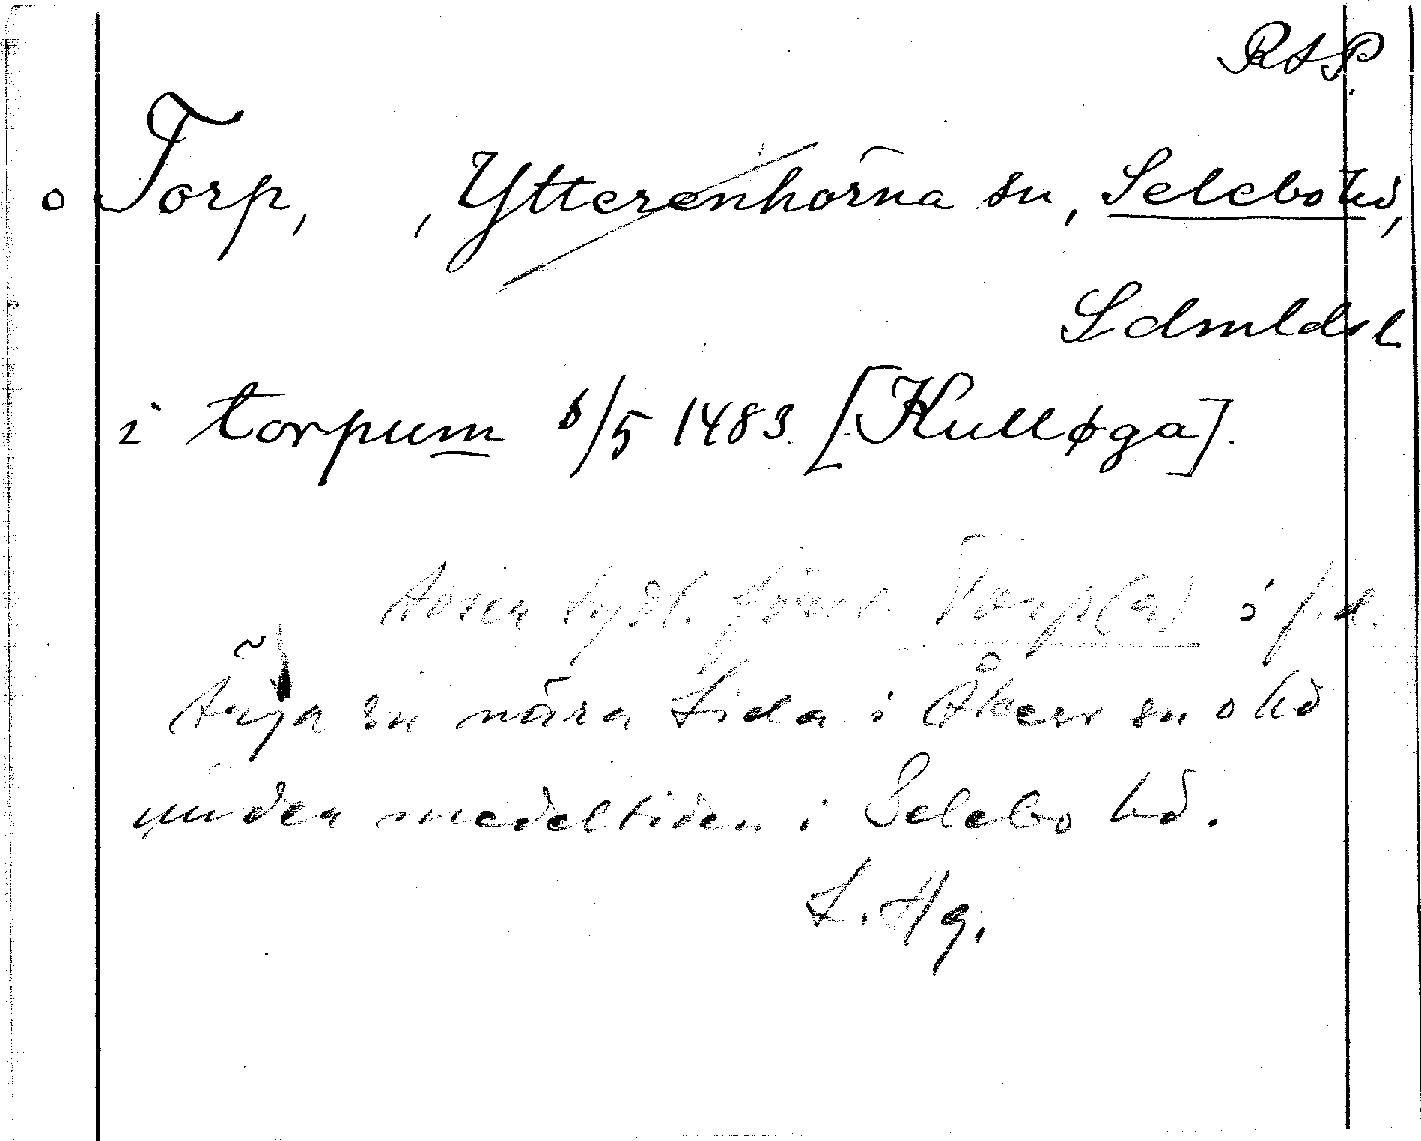 RAP.
o Torp, , Ytterenhörna sn, Selebo hd,
Sdmldsk
i torpum 8/5 1483. [Kulløga].
Avser tydl. förel. Torp(a) i f.d.
Ärja sn nära Lida i Åkers sn o hd
under medeltiden i Selebo hd.
L. Hg.